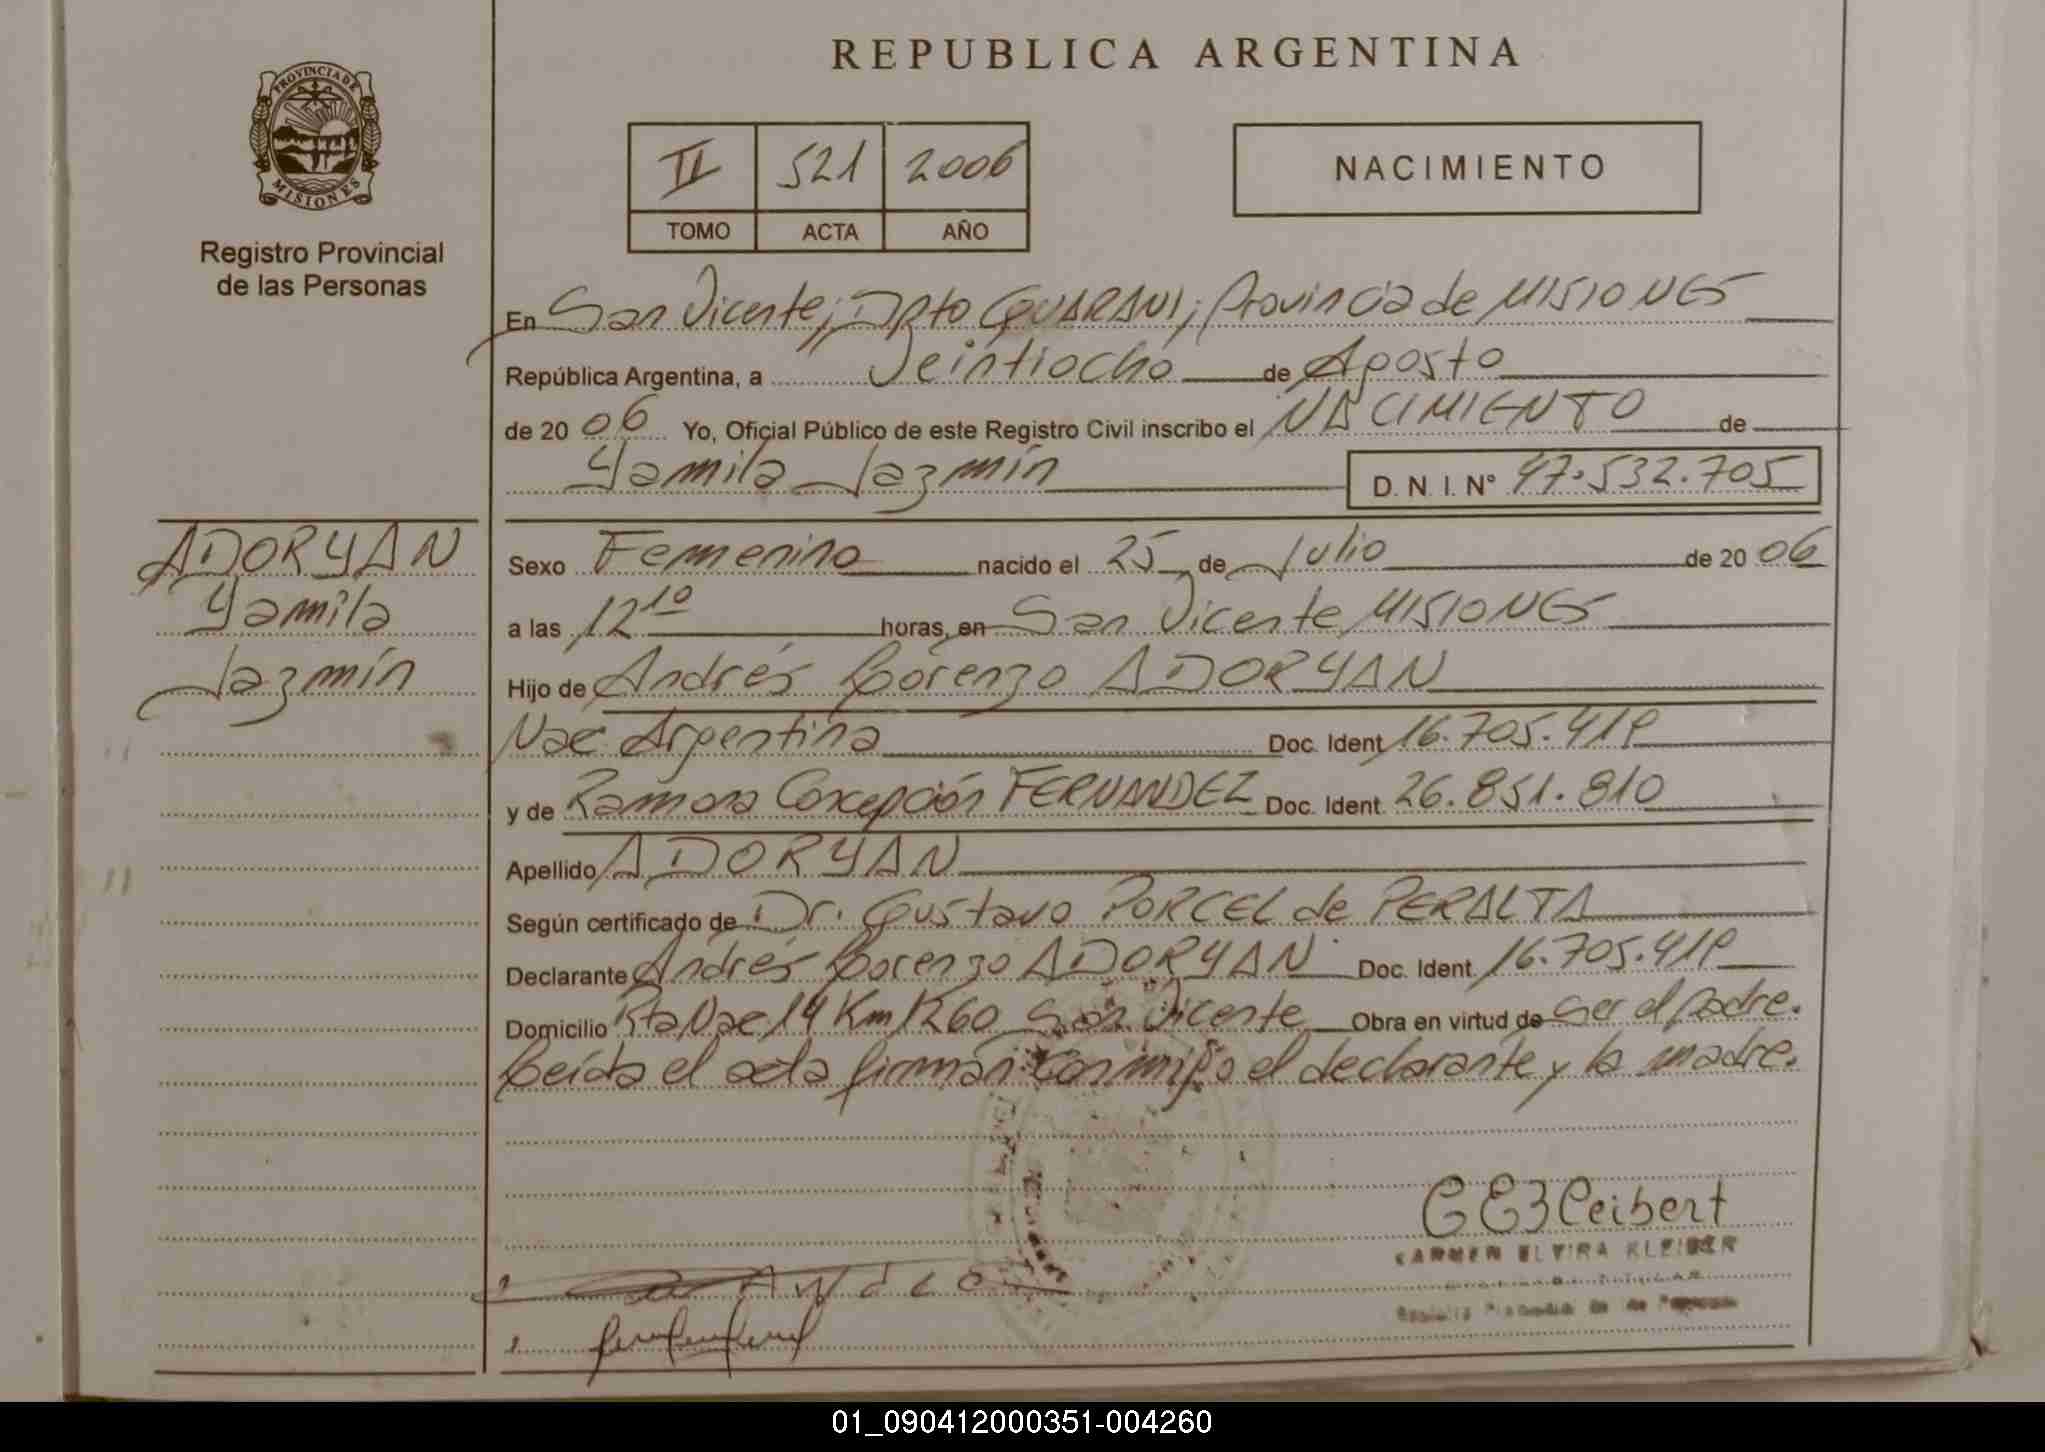 REPUBLICA ARGENTINA
PROVINCIA DE
MISIONES
Registro Provincial
de las Personas
II 521 2006
TOMO ACTA AÑO
NACIMIENTO
En San Vicente; Dpto GUARANI; Provincia de MISIONES
República Argentina, a Veintiocho de Agosto
de 20 06 Yo, Oficial Público de este Registro Civil inscribo el NACIMIENTO de
Yamila Jazmín D. N. I. N° 47.532.705
ADORYAN
Yamila
Jazmín
Sexo Femenino nacido el 25 de Julio de 20 06
a las 12 10 horas, en San Vicente MISIONES
Hijo de Andrés Lorenzo ADORYAN
Nac Argentina Doc. Ident. 16.705.419
y de Ramona Concepción FERNANDEZ Doc. Ident. 26.851.810
Apellido ADORYAN
Según certificado de Dr. Gustavo PORCEL de PERALTA
Declarante Andrés Lorenzo ADORYAN Doc. Ident. 16.705.419
Domicilio Rta Nac 14 Km 1260 San Vicente Obra en virtud de ser el padre.
Leída el acta firman conmigo el declarante y la madre.
CARMEN ELVIRA
01_090412000351-004260